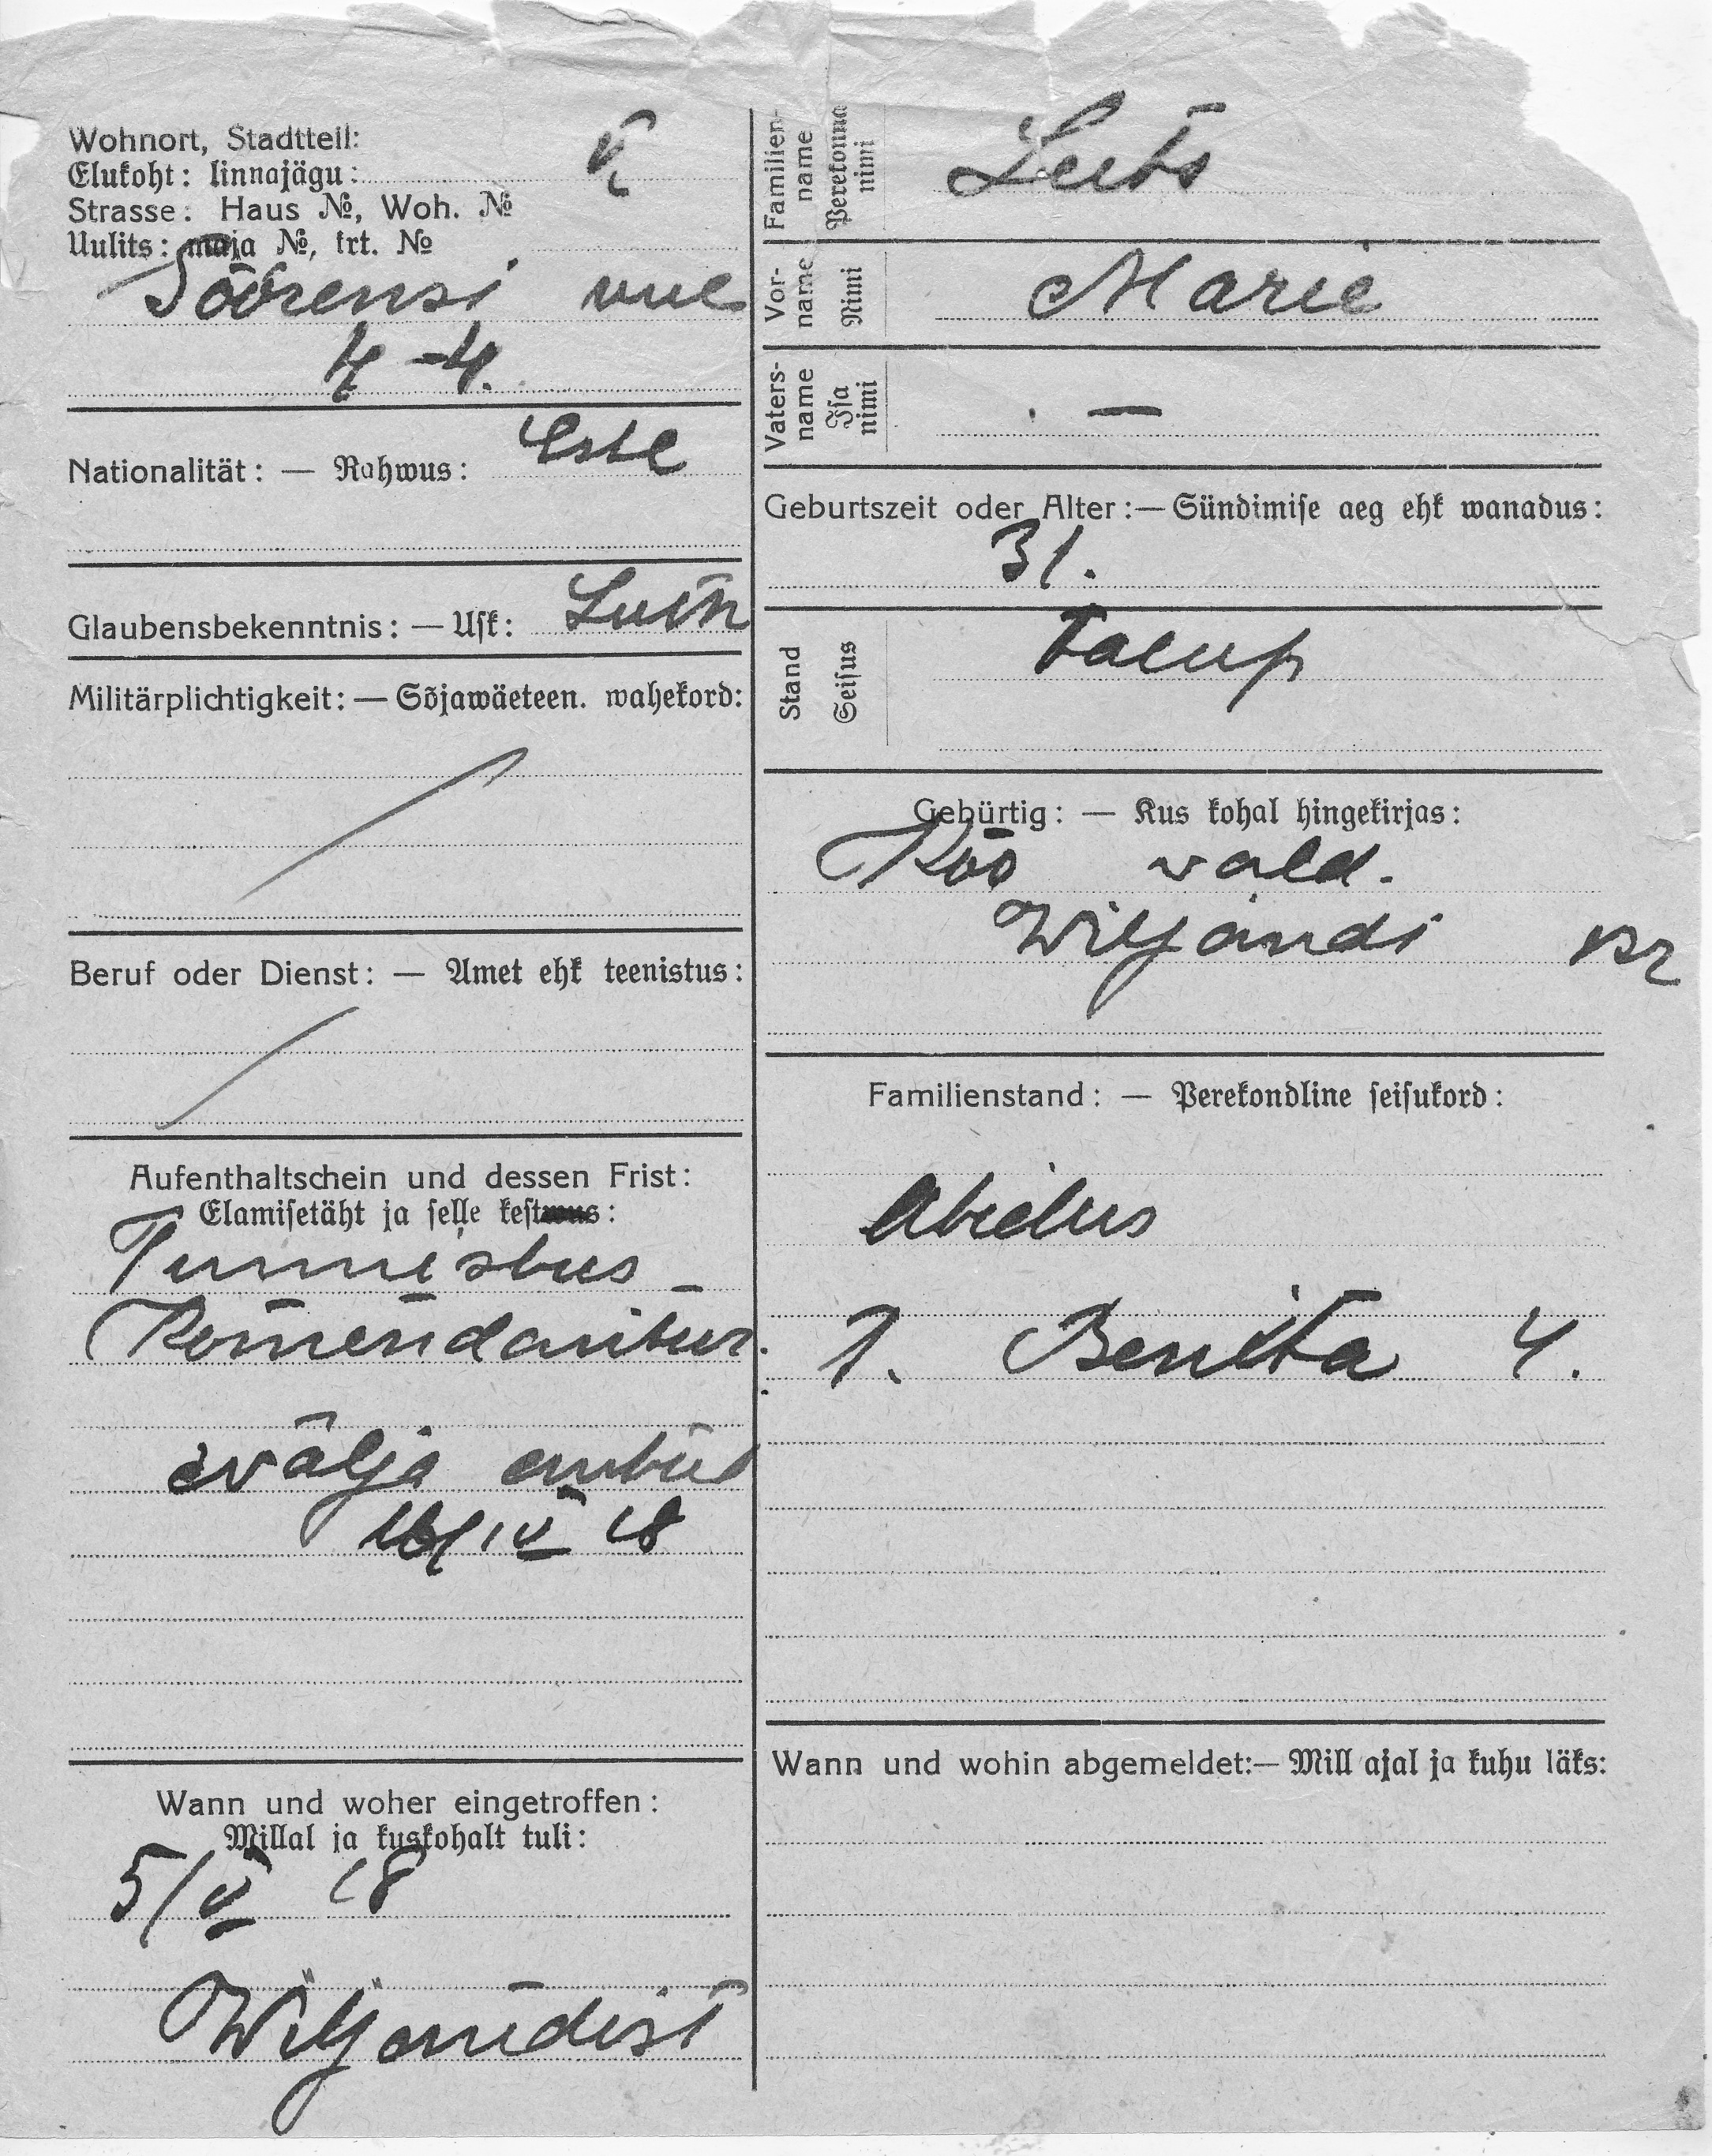 Wohnort, Stadtteil:
Elukoht: linnajägu:
Strasse: Haus №, Woh. №
Uulits: maja №, krt. №
4.
Nationalität: — Rahwus: Estl
Glaubensbekenntnis: — Usk: Luth
Militärplichtigkeit: — Sõjawäeteen. wahekord:
Beruf oder Dienst: — Amet ehk teenistus:
Aufenthaltschein und dessen Frist:
Elamisetäht ja selle kestwus:
Tunnistus
Komendantur.
wälja antud
IV 18
Wann und woher eingetroffen:
Millal ja kuskohalt tuli:
5/V 18
Wiljandist
Familien-name Perekonna nimi
Vor-name Nimi Marie
Vaters-name Isa nimi —
Geburtszeit oder Alter: — Sündimise aeg ehk wanadus:
31.
Stand Seisus Talup
Gebürtig: — Kus kohal hingekirjas:
Köo wald.
Wiljandi kr
Familienstand: — Perekondline seisukord:
Abielus
1. Benita 4.
Wann und wohin abgemeldet: — Mill ajal ja kuhu läks: